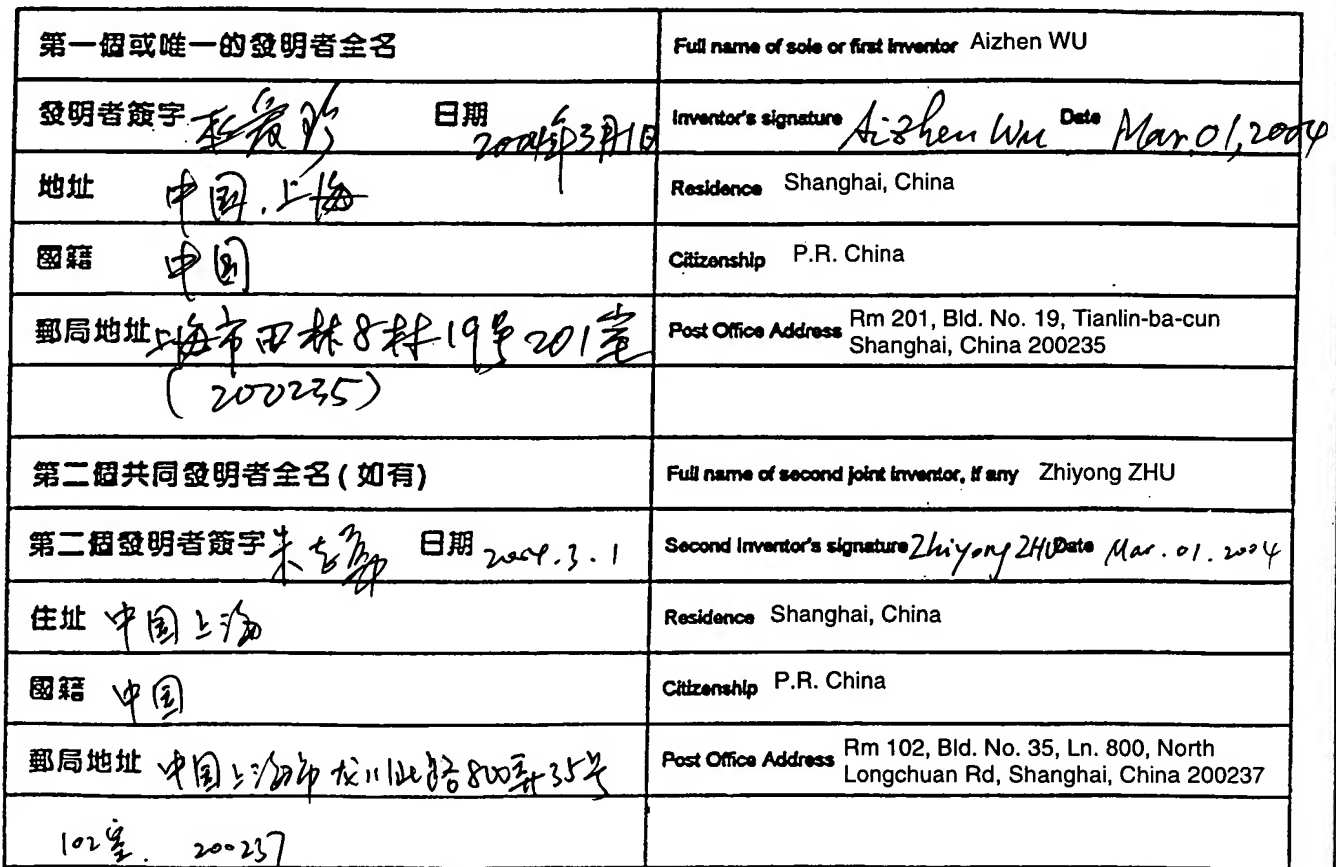 第一個或唯一的發明者全名 Full name of sole or first inventor Aizhen WU
發明者簽字 爱珍 日期 2004年3月1日 Inventor's signature Aizhen Wu Date Mar. 01, 2004
地址 中国.上海 Residence Shanghai, China
國籍 中国 Citizenship P.R. China
郵局地址 上海市田林8村19号201室 Post Office Address Rm 201, Bld. No. 19, Tianlin-ba-cun
Shanghai, China 200235
(200235)
第二個共同發明者全名 ( 如有) Full name of second joint inventor, if any Zhiyong ZHU
第二個發明者簽字 朱志 日期 2004.3.1 Second Inventor's signature Zhiyong ZHU Date Mar. 01. 2004
住址 中国上海 Residence Shanghai, China
國籍 中国 Citizenship P.R. China
郵局地址 中国上海市龙川北路800弄35号 Post Office Address Rm 102, Bld. No. 35, Ln. 800, North
Longchuan Rd, Shanghai, China 200237
102室. 200237